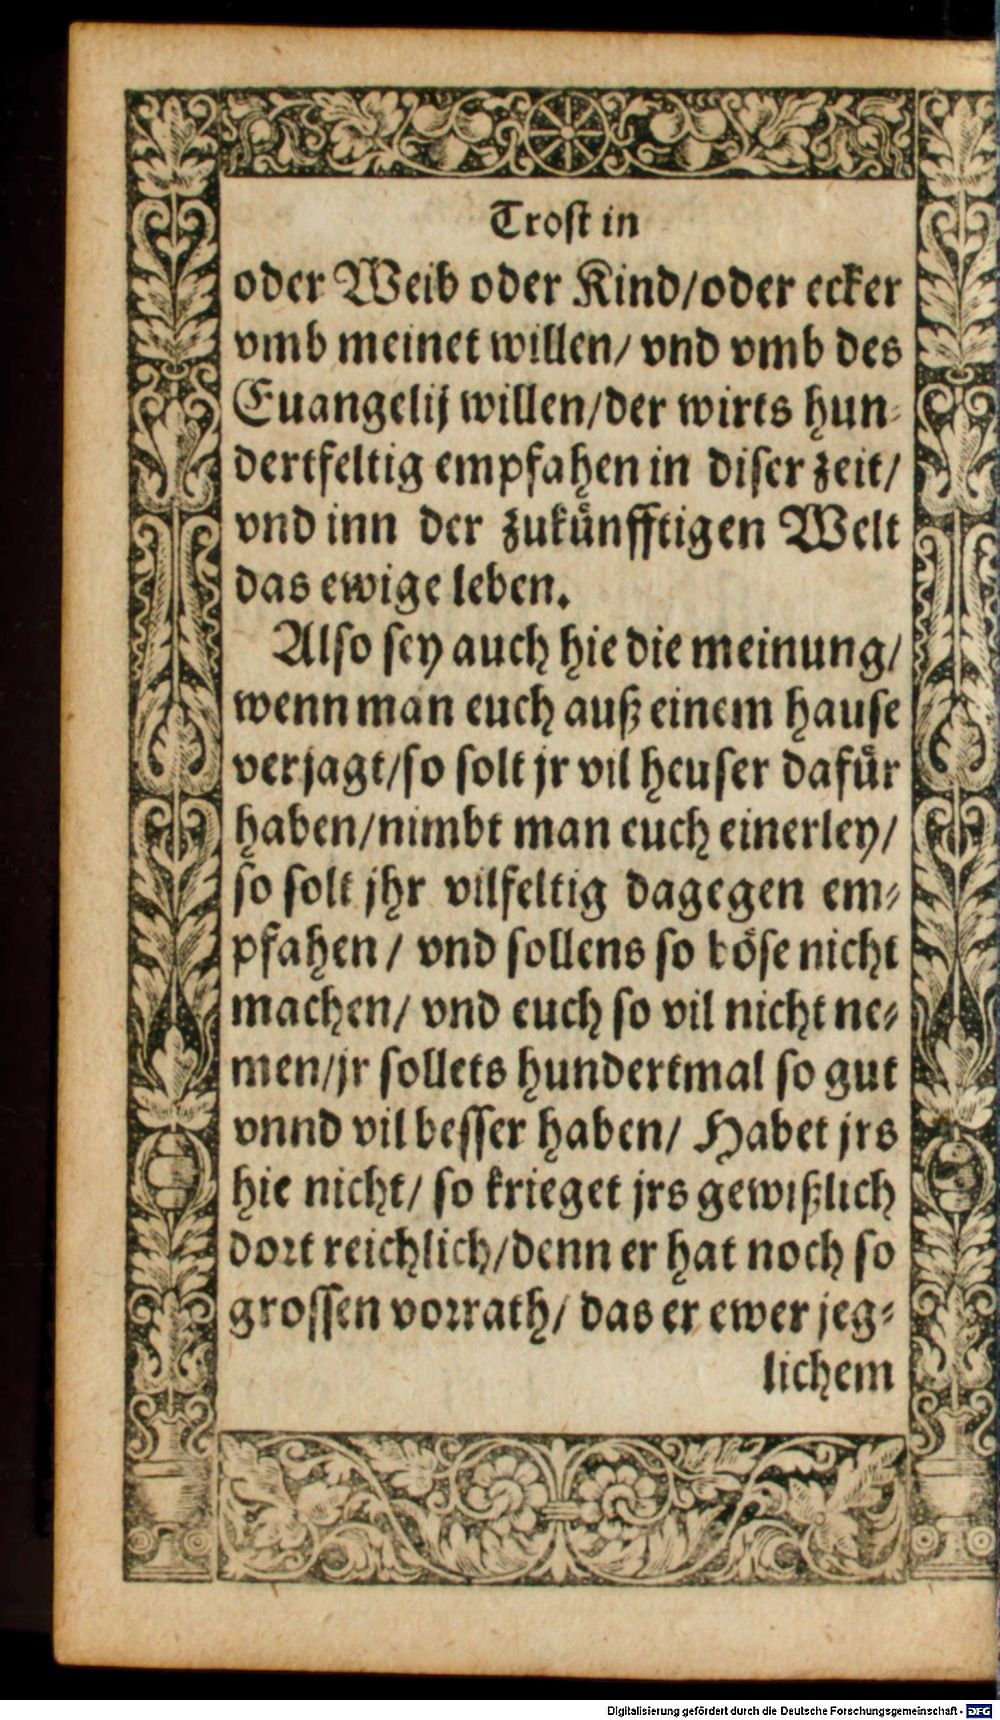 Trost in
oder Weib oder Kind/oder ecker
vmb meinet willen/ vnd vmb des
Euangelij willen/der wirts hun-
dertfeltig empfahen in diser zeit/
vnd inn der zukünfftigen Welt
das ewige leben.
Also sey auch hie die meinung/
wenn man euch auß einem hause
verjagt/so solt jr vil heuser dafür
haben/nimbt man euch einerley/
so solt jhr vilfeltig dagegen em-
pfahen/ vnd sollens so böse nicht
machen/ vnd euch so vil nicht ne-
men/jr sollets hundertmal so gut
vnnd vil besser haben/ Habet jrs
hie nicht/ so krieget jrs gewißlich
dort reichlich/denn er hat noch so
grossen vorrath/ das er ewer jeg-
lichem
Digitalisierung gefördert durch die Deutsche Forschungsgemeinschaft - DFG